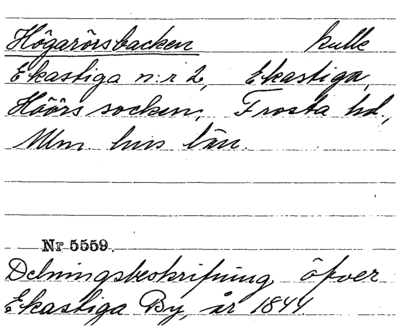 Högarörsbacken kulle
Ekastiga n:r 2, Ekastiga,
Höörs socken, Frosta hd,
Mlm. hus län.
Nr 5559.
Delningsbeskrifning öfver
Ekastiga By, år 1844.